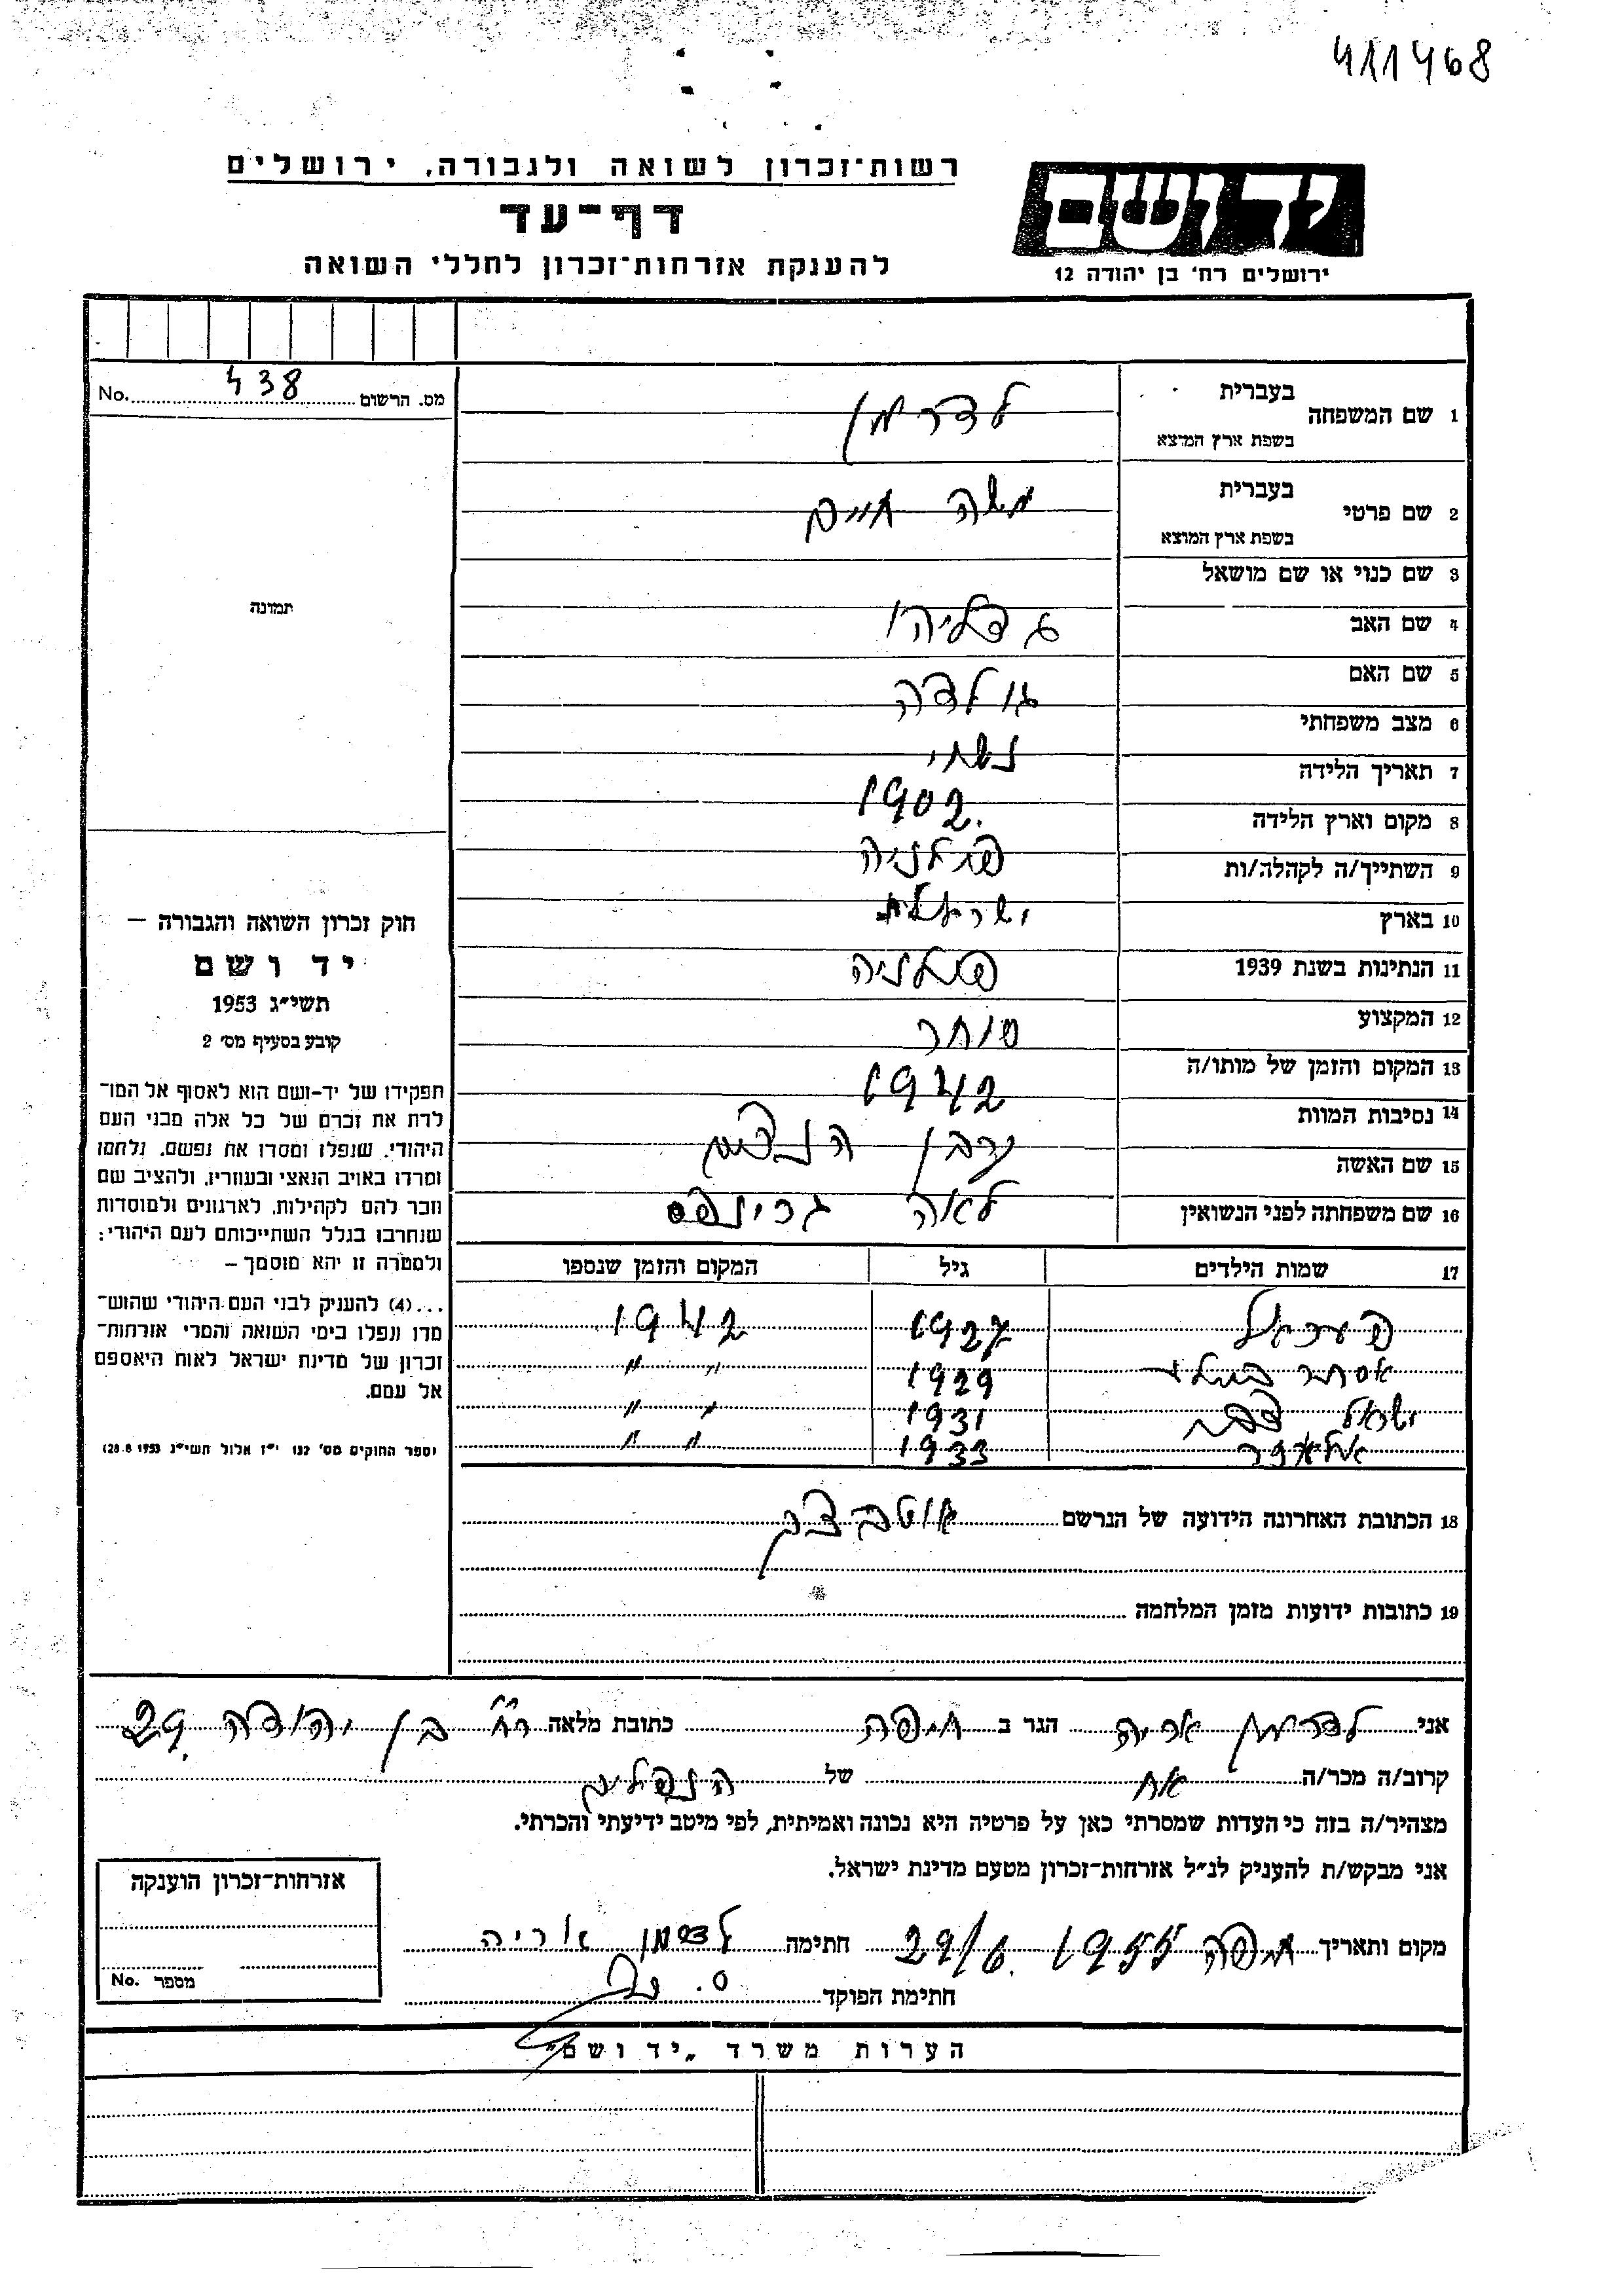 411468
רשות־זכרון לשואה ולגבורה, ירושלים
דף־עד
להענקת אזרחות־זכרון לחללי השואה
יד ושם
ירושלים רח' בן יהודה 12
No. 438 מס. הרשום
תמונה
חוק זכרון השואה והגבורה —
יד ושם
תשי״ג 1953
קובע בסעיף מס' 2
תפקידו של יד-ושם הוא לאסוף אל המו־
לדת את זכרם של כל אלה מבני העם
היהודי, שנפלו ומסרו את נפשם, נלחמו
ומרדו באויב הנאצי ובעוזריו, ולהציב שם
וזכר להם לקהילות, לארגונים ולמוסדות
שנחרבו בגלל השתייכותם לעם היהודי;
ולמטרה זו יהא מוסמך —
...(4) להעניק לבני העם היהודי שהוש־
מדו ונפלו בימי השואה והמרי אזרחות־
זכרון של מדינת ישראל לאות היאספם
אל עמם.
(ספר החוקים מס' 132 י״ז אלול תשי״ג 28.8.1953)
1 שם המשפחה בעברית לדרמן
בשפת ארץ המוצא
2 שם פרטי בעברית משה חיים
בשפת ארץ המוצא
3 שם כנוי או שם מושאל
4 שם האב גדליהו
5 שם האם גולדה
6 מצב משפחתי נשוי
7 תאריך הלידה 1902
8 מקום וארץ הלידה פולניה
9 השתייך/ה לקהלה/ות ישראלית
10 בארץ פולניה
11 הנתינות בשנת 1939
12 המקצוע סוחר
13 המקום והזמן של מותו/ה 1942
14 נסיבות המוות קרבן הנצים
15 שם האשה לאה
16 שם משפחתה לפני הנשואין
17 שמות הילדים גיל המקום והזמן שנספו
1927 1942
אסתר 1929 " "
ישראל 1931 " "
1933 " "
18 הכתובת האחרונה הידועה של הנרשם אוטבוצק
19 כתובות ידועות מזמן המלחמה
אני לדרמן אריה הגר ב חיפה כתובת מלאה רח' בן יהודה 29
קרוב/ה מכר/ה אח של הנפלים
מצהיר/ה בזה כי העדות שמסרתי כאן על פרטיה היא נכונה ואמיתית, לפי מיטב ידיעתי והכרתי.
אני מבקש/ת להעניק לנ״ל אזרחות-זכרון מטעם מדינת ישראל.
מקום ותאריך חיפה 29/6 1955 חתימה לדרמן אריה
חתימת הפוקד
אזרחות־זכרון הוענקה
No. מספר
הערות משרד „יד ושם"